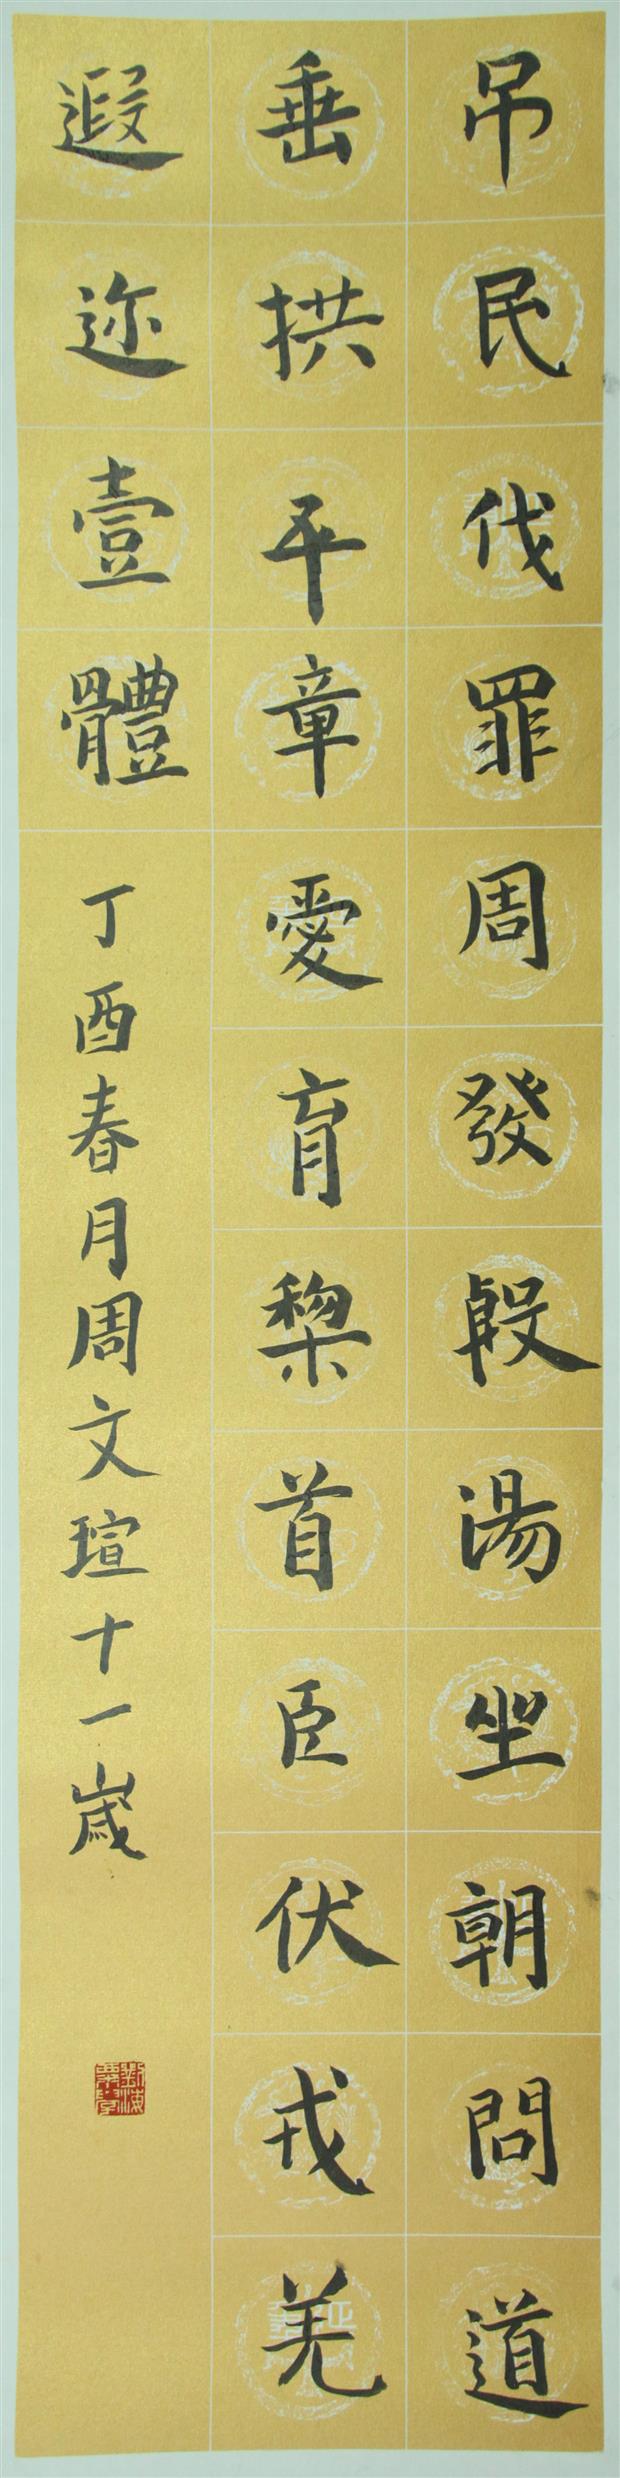 吊民伐罪周發殷湯坐朝問道
垂拱平章愛育黎首臣伏戎羌
遐迩壹體
丁酉春月周文瑄十一歲